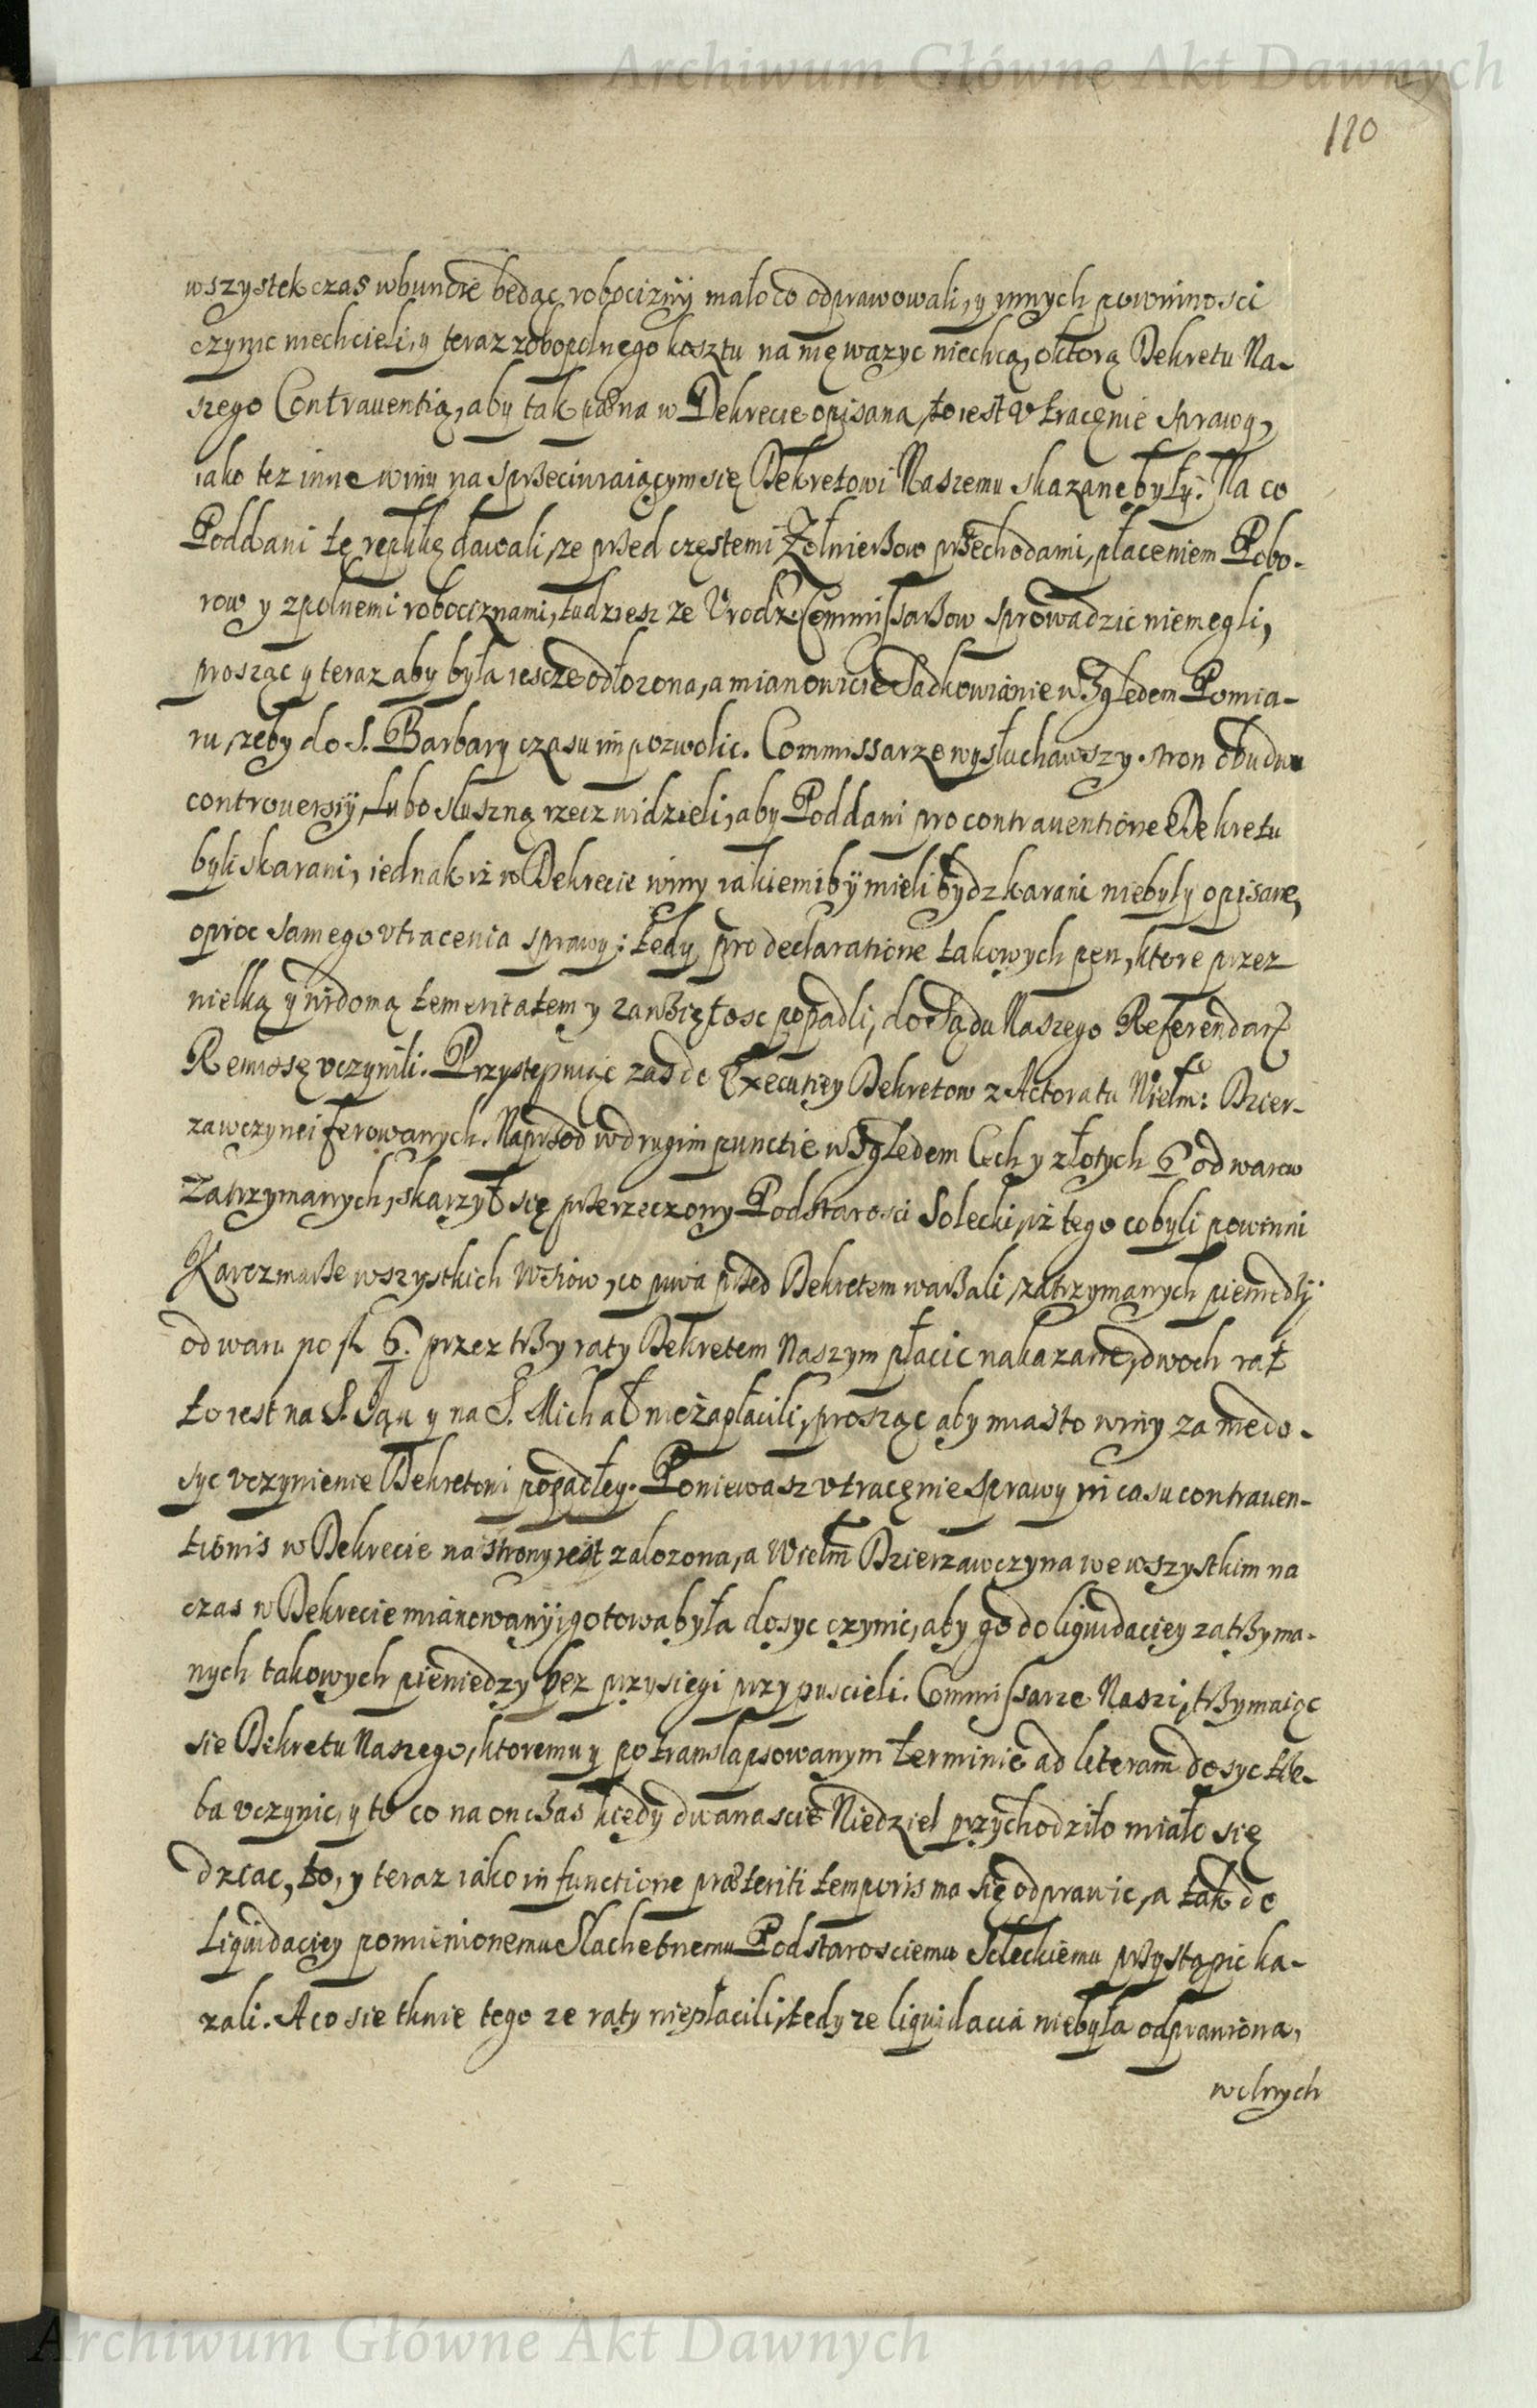 Archiwum Główne Akt Dawnych
110
wszystek czas w buncie będąc robocizny mało co odprawowali, y innych powinnosci
czynic niechcieli, y teraz zobopolnego kosztu na nię wazyc niechcą, o ktorą Dekretu Na-
szego Contrauentią, aby tak pæna w Dekrecie opisana, to iest vtracęnie sprawy,
iako tez inne winy na sprzeciwiaiącym się Dekretowi Naszemu skazane były. Na co
Poddani tę replikę dawali, ze przed częstemi Zołnierzow przechodami, płaceniem Pobo-
row y zpolnemi robociznami, tudziesz ze Vrodz: Commissarzow sprowadzic niemogli,
prosząc y teraz aby była iescze odłozona, a mianowicie Sadkowianie względem Pomia-
ru, zeby do S. Barbary czasu im pozwolic. Commissarze wysłuchawszy stron obudwu
controuersiÿ, lubo słuszną rzecz widzieli, aby Poddani pro contrauentione Dekretu
byli skarani, iednak iz w Dekrecie winy iakiemi bÿ mieli bydz karani niebyły opisane,
oproc samego vtracenia sprawy: tedy pro declaratione takowych pen, ktore przez
wielką y widomą temeritatem y zawziętosc popadli, do Sądu Naszego Referendarz
Remissę vczynili. Przystępuiąc zas do Executiey Dekretow z Actoratu Wielm: Dzier-
zawczynei ferowanych. Naprzod w drugim punctie względem Cech y złotych 6 od warow
Zatrzymanych, skarzył się przerzeczony Podstarosci Solecki, iz tego co byli powinni
Karczmarze wszystkich Wsiow, co piwa przed Dekretem warzali, zatrzymanych pieniędzÿ
od waru po fl 6. przez trzy raty Dekretem Naszym płacic nakazane, dwoch rat
to iest na S. Ian y na S. Michał niezapłacili, prosząc aby miasto winy za niedo-
syc vczynienie Dekretowi popadłey. Poniewasz vtracęnie sprawy in casu contrauen-
tionis w Dekrecie na strony iest załozona, a Wielm Dzierzawczyna we wszystkim na
czas w Dekrecie mianowanÿ gotowa była dosyc czynic, aby go do liquidaciey zatrzyma-
nych takowych pieniedzy bez przysiegi przypuscieli. Commissarze Naszi, trzymaiąc
sie Dekretu Naszego, ktoremu y po translapsowanym terminie ad literam dosyc trze-
ba vczynic, y to co na on czas kiedy dwanascie Niedziel przychodziło miało się
dziac, to, y teraz iako in functione præteriti temporis ma się odprawic, a tak do
Liquidaciey pomienionemu Slachetnemu Podstarosciemu Soleckiemu przystąpic ka-
zali. A co sie tknie tego ze raty niepłacili, tedy ze liquidacia niebyła odprawiona,
wolnych
Archiwum Główne Akt Dawnych